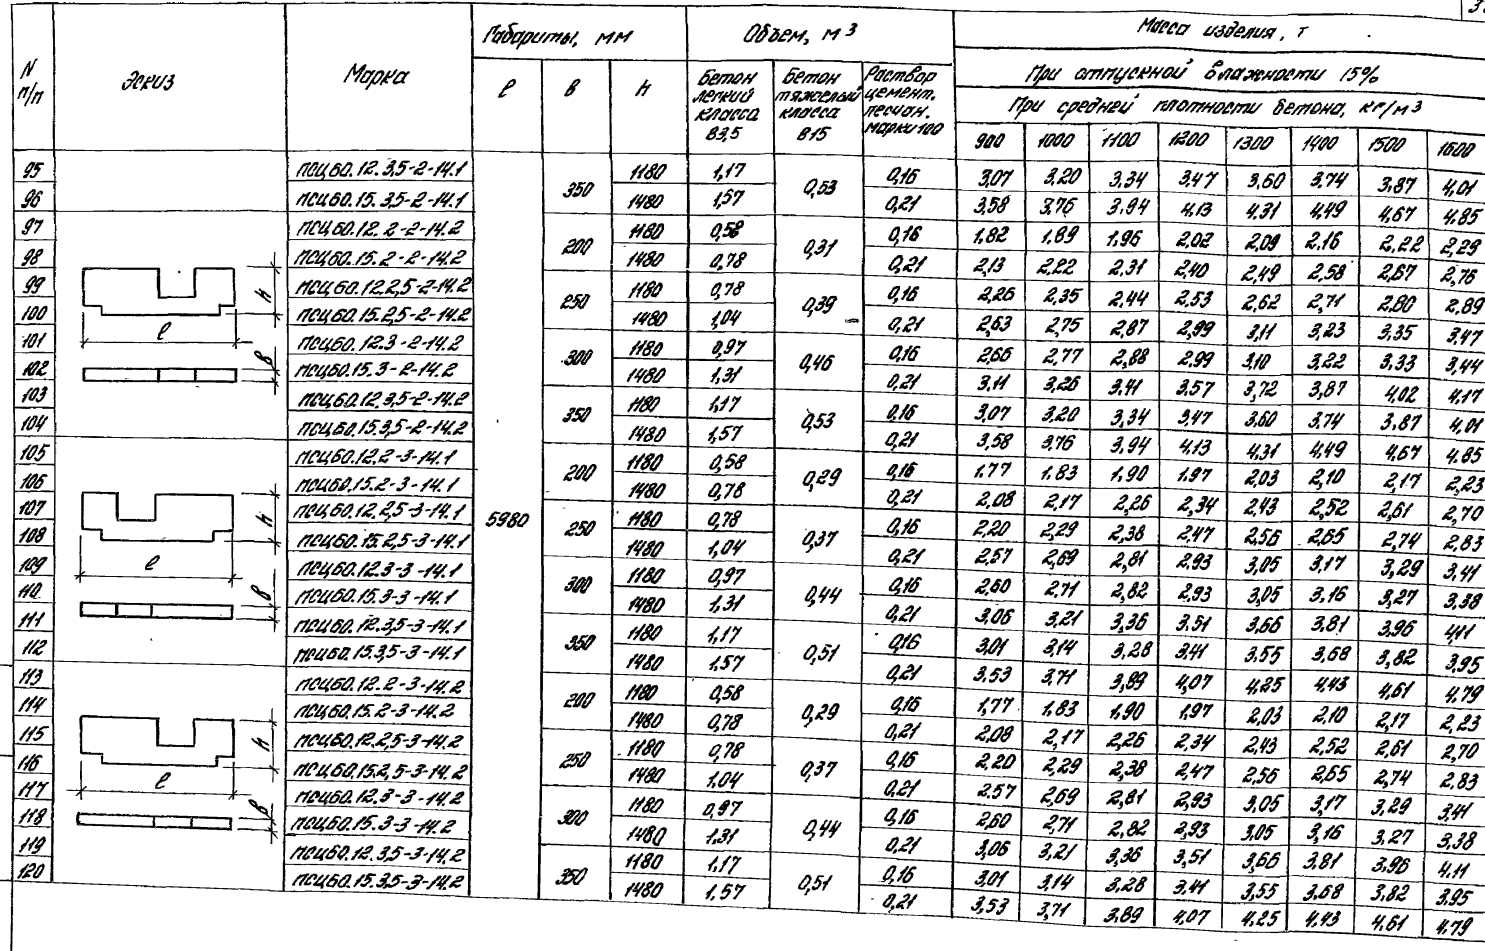 N п/п Эскиз Марка Габариты, мм Объем, м3 Масса изделия, т
При отпускной влажности 15%
При средней плотности бетона, кг/м3
ℓ в h Бетон легкий класса В3,5 Бетон тяжелый класса В15 Раствор цемент. песчан. марки 100 900 1000 1100 1200 1300 1400 1500 1600
95 ПСЦ60.12.3,5-2-14.1 350 1180 1,17 0,53 0,16 3,07 3,20 3,34 3,47 3,60 3,74 3,87 4,01
96 ПСЦ60.15.3,5-2-14.1 1480 1,57 0,21 3,58 3,76 3,94 4,13 4,31 4,49 4,67 4,85
97 ПСЦ60.12.2-2-14.2 200 1180 0,58 0,31 0,16 1,82 1,89 1,96 2,02 2,09 2,16 2,22 2,29
98 ПСЦ60.15.2-2-14.2 1480 0,78 0,21 2,13 2,22 2,31 2,40 2,49 2,58 2,67 2,76
99 ПСЦ60.12.2,5-2-14.2 250 1180 0,78 0,39 0,16 2,26 2,35 2,44 2,53 2,62 2,71 2,80 2,89
100 ПСЦ60.15.2,5-2-14.2 1480 1,04 0,21 2,63 2,75 2,87 2,99 3,11 3,23 3,35 3,47
101 ПСЦ60.12.3-2-14.2 300 1180 0,97 0,46 0,16 2,66 2,77 2,88 2,99 3,10 3,22 3,33 3,44
102 ПСЦ60.15.3-2-14.2 1480 1,31 0,21 3,11 3,26 3,41 3,57 3,72 3,87 4,02 4,17
103 ПСЦ60.12.3,5-2-14.2 350 1180 1,17 0,53 0,16 3,07 3,20 3,34 3,47 3,60 3,74 3,87 4,01
104 ПСЦ60.15.3,5-2-14.2 1480 1,57 0,21 3,58 3,76 3,94 4,13 4,31 4,49 4,67 4,85
105 ПСЦ60.12.2-3-14.1 200 1180 0,58 0,29 0,16 1,77 1,83 1,90 1,97 2,03 2,10 2,17 2,23
106 ПСЦ60.15.2-3-14.1 1480 0,78 0,21 2,08 2,17 2,26 2,34 2,43 2,52 2,61 2,70
107 ПСЦ60.12.2,5-3-14.1 5980 250 1180 0,78 0,37 0,16 2,20 2,29 2,38 2,47 2,56 2,65 2,74 2,83
108 ПСЦ60.15.2,5-3-14.1 1480 1,04 0,21 2,57 2,69 2,81 2,93 3,05 3,17 3,29 3,41
109 ПСЦ60.12.3-3-14.1 300 1180 0,97 0,44 0,16 2,60 2,71 2,82 2,93 3,05 3,16 3,27 3,38
110 ПСЦ60.15.3-3-14.1 1480 1,31 0,21 3,06 3,21 3,36 3,51 3,66 3,81 3,96 4,11
111 ПСЦ60.12.3,5-3-14.1 350 1180 1,17 0,51 0,16 3,01 3,14 3,28 3,41 3,55 3,68 3,82 3,95
112 ПСЦ60.15.3,5-3-14.1 1480 1,57 0,21 3,53 3,71 3,89 4,07 4,25 4,43 4,61 4,79
113 ПСЦ60.12.2-3-14.2 200 1180 0,58 0,29 0,16 1,77 1,83 1,90 1,97 2,03 2,10 2,17 2,23
114 ПСЦ60.15.2-3-14.2 1480 0,78 0,21 2,08 2,17 2,26 2,34 2,43 2,52 2,61 2,70
115 ПСЦ60.12.2,5-3-14.2 250 1180 0,78 0,37 0,16 2,20 2,29 2,38 2,47 2,56 2,65 2,74 2,83
116 ПСЦ60.15.2,5-3-14.2 1480 1,04 0,21 2,57 2,69 2,81 2,93 3,05 3,17 3,29 3,41
117 ПСЦ60.12.3-3-14.2 300 1180 0,97 0,44 0,16 2,60 2,71 2,82 2,93 3,05 3,16 3,27 3,38
118 ПСЦ60.15.3-3-14.2 1480 1,31 0,21 3,06 3,21 3,36 3,51 3,66 3,81 3,96 4,11
119 ПСЦ60.12.3,5-3-14.2 350 1180 1,17 0,51 0,16 3,01 3,14 3,28 3,41 3,55 3,68 3,82 3,95
120 ПСЦ60.15.3,5-3-14.2 1480 1,57 0,21 3,53 3,71 3,89 4,07 4,25 4,43 4,61 4,79
ℓ h в
ℓ h в
ℓ h в